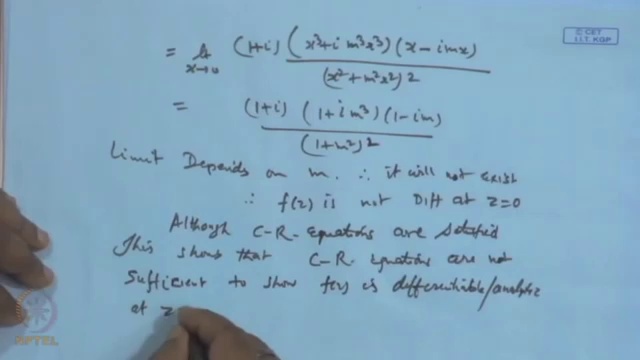 © CET
I.I.T. KGP
= lim x→0 (1+i) (x³+i m³x³) (x − imx) / (x²+m²x²)²
= (1+i) (1+i m³) (1−im) / (1+m²)²
Limit Depends on m. ∴ it will not exist
∴ f(z) is not Diff at z=0
Although C-R- Equations are satisfied
This shows that C-R- Equations are not
Sufficient to show f(z) is differentiable/analytic
at z
NPTEL